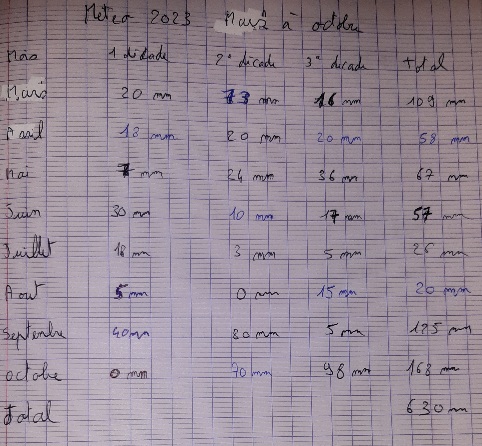 Meteo 2023 Mars à octobre
Mois 1 décade 2° décade 3° décade total
Mars 20 mm 73 mm 16 mm 109 mm
Avril 18 mm 20 mm 20 mm 58 mm
Mai 7 mm 24 mm 36 mm 67 mm
Juin 30 mm 10 mm 17 mm 57 mm
Juillet 18 mm 3 mm 5 mm 26 mm
Aout 5 mm 0 mm 15 mm 20 mm
Septembre 40 mm 80 mm 5 mm 125 mm
octobre 0 mm 70 mm 98 mm 168 mm
Total 630 mm